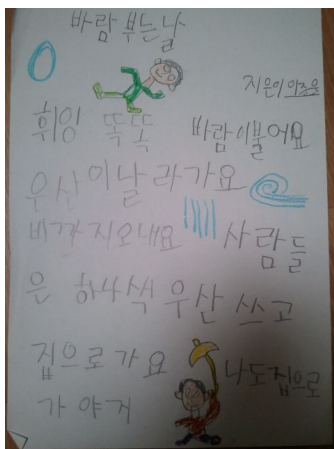 바람 부는 날
지은이 이즈음
휘잉 똑똑 바람이불어요
우산이날라가요
비까지오내요 사람들
은 하나씩 우산 쓰고
집으로가요 나도집으로
가야지